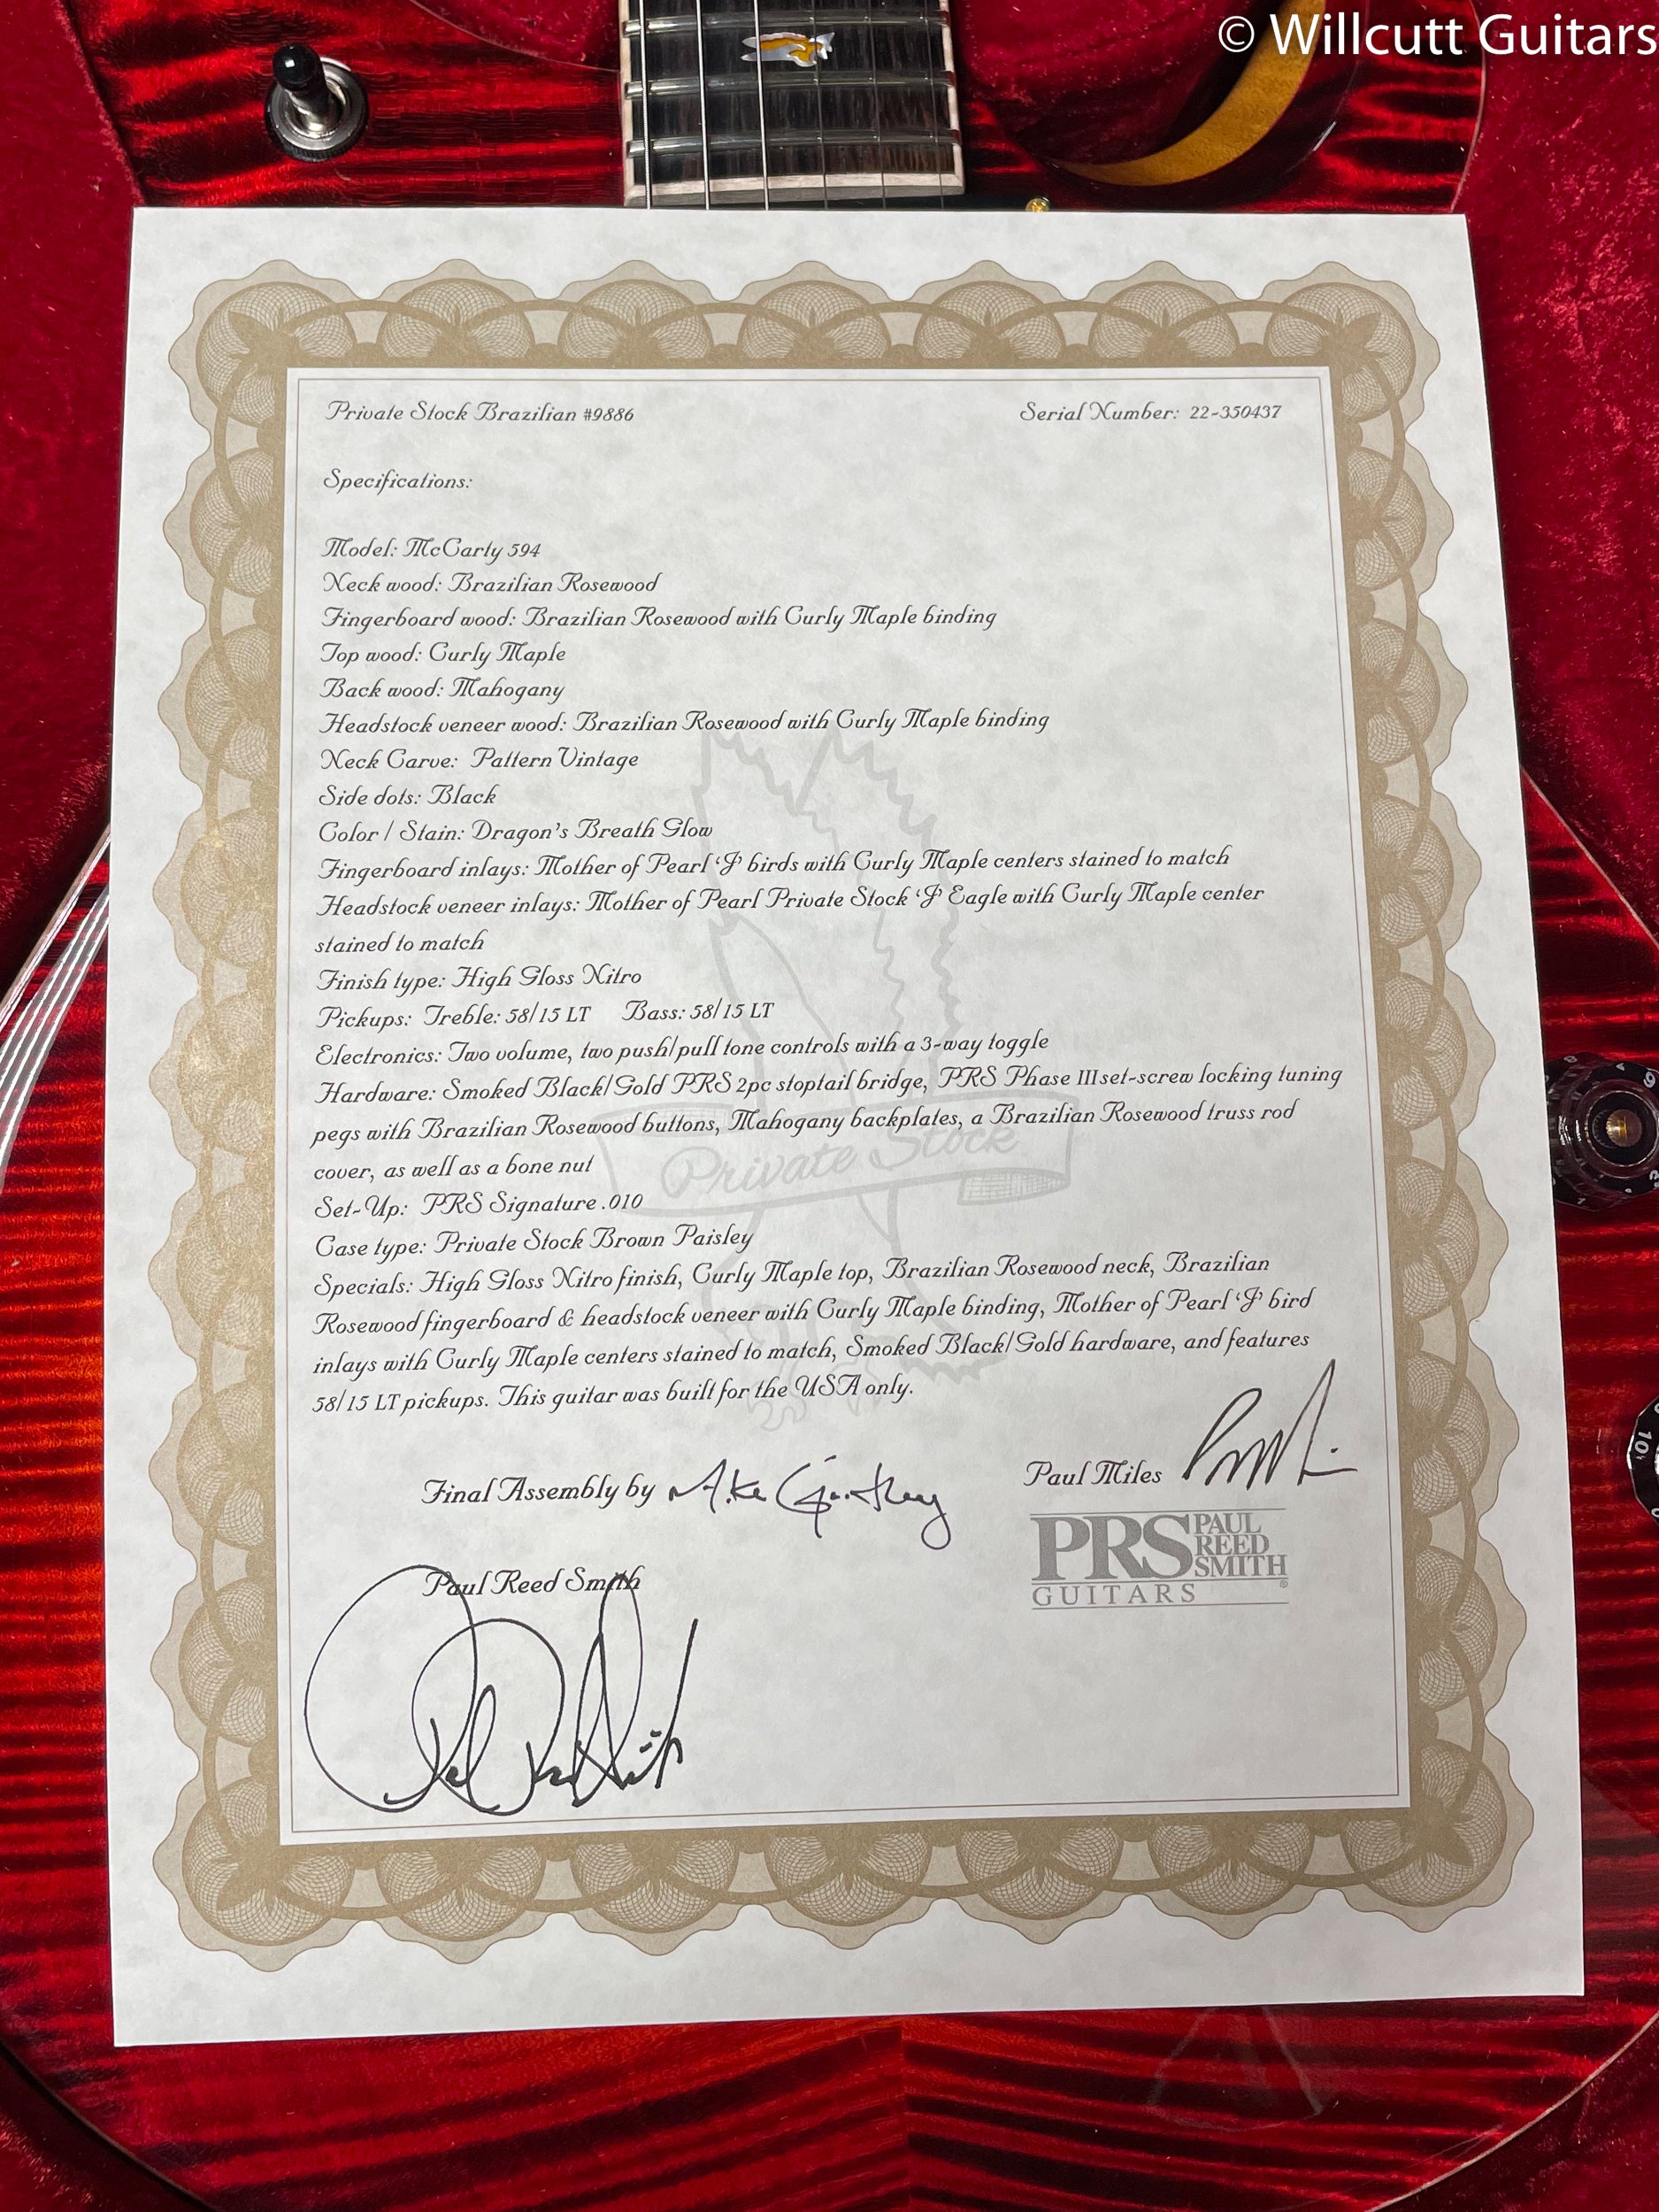 © Willcutt Guitars
Private Stock Brazilian #9886 Serial Number: 22-350437
Specifications:
Model: McCarty 594
Neck wood: Brazilian Rosewood
Fingerboard wood: Brazilian Rosewood with Curly Maple binding
Top wood: Curly Maple
Back wood: Mahogany
Headstock veneer wood: Brazilian Rosewood with Curly Maple binding
Neck Carve: Pattern Vintage
Side dots: Black
Color / Stain: Dragon's Breath Glow
Fingerboard inlays: Mother of Pearl 'J' birds with Curly Maple centers stained to match
Headstock veneer inlays: Mother of Pearl Private Stock 'J' Eagle with Curly Maple center
stained to match
Finish type: High Gloss Nitro
Pickups: Treble: 58/15 LT Bass: 58/15 LT
Electronics: Two volume, two push/pull tone controls with a 3-way toggle
Hardware: Smoked Black/Gold PRS 2pc stoptail bridge, PRS Phase III set-screw locking tuning
pegs with Brazilian Rosewood buttons, Mahogany backplates, a Brazilian Rosewood truss rod
cover, as well as a bone nut
Private Stock
Set-Up: PRS Signature .010
Case type: Private Stock Brown Paisley
Specials: High Gloss Nitro finish, Curly Maple top, Brazilian Rosewood neck, Brazilian
Rosewood fingerboard & headstock veneer with Curly Maple binding, Mother of Pearl 'J' bird
inlays with Curly Maple centers stained to match, Smoked Black/Gold hardware, and features
58/15 LT pickups. This guitar was built for the USA only.
Final Assembly by Mike
Paul Miles
PRS PAUL
REED
SMITH
GUITARS
Paul Reed Smith
10